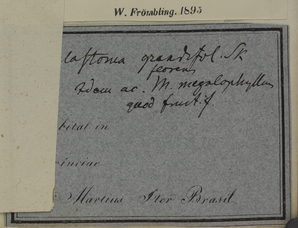 W. Frömbling. 1895
lastoma grandifol. Sk
florens
Idem ac. M. megalophyllum
quod fructif
bitat in
vinciae
Martius Iter Brasil.